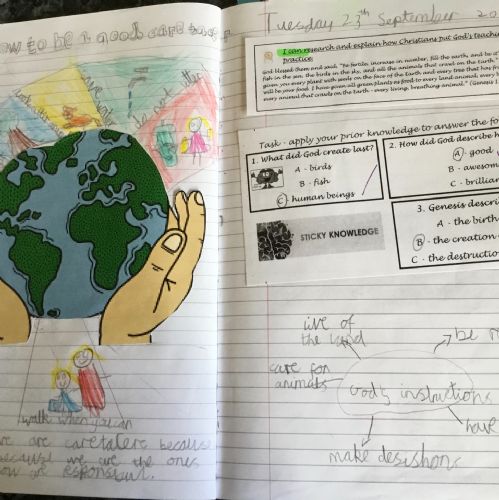 how to be a good care taker
walk when you can
we are caretakers because
because we are the ones
how are responsibul.
Tuesday 23th September 20
I can research and explain how Christians put God's teachin
practice.
God blessed them and said, "Be fertile, increase in number, fill the earth, and be
fish in the sea, the birds in the sky, and all the animals that crawl on the earth."
given you every plant with seeds on the face of the earth and every tree that has
will be your food. I have given all green plants as food to every land animal, every
every animal that crawls on the earth - every living, breathing animal." (Genesis 1
Task - apply your prior knowledge to answer the fo
1. What did God create last?
A - birds
B - fish
C - human beings
2. How did God describe h
A - good
B - awesom
C - brillian
STICKY KNOWLEDGE
3. Genesis descri
A - the birth
B - the creation
C - the destructio
live of
the land
be
care for
animals
God's instructions
have
make desishons